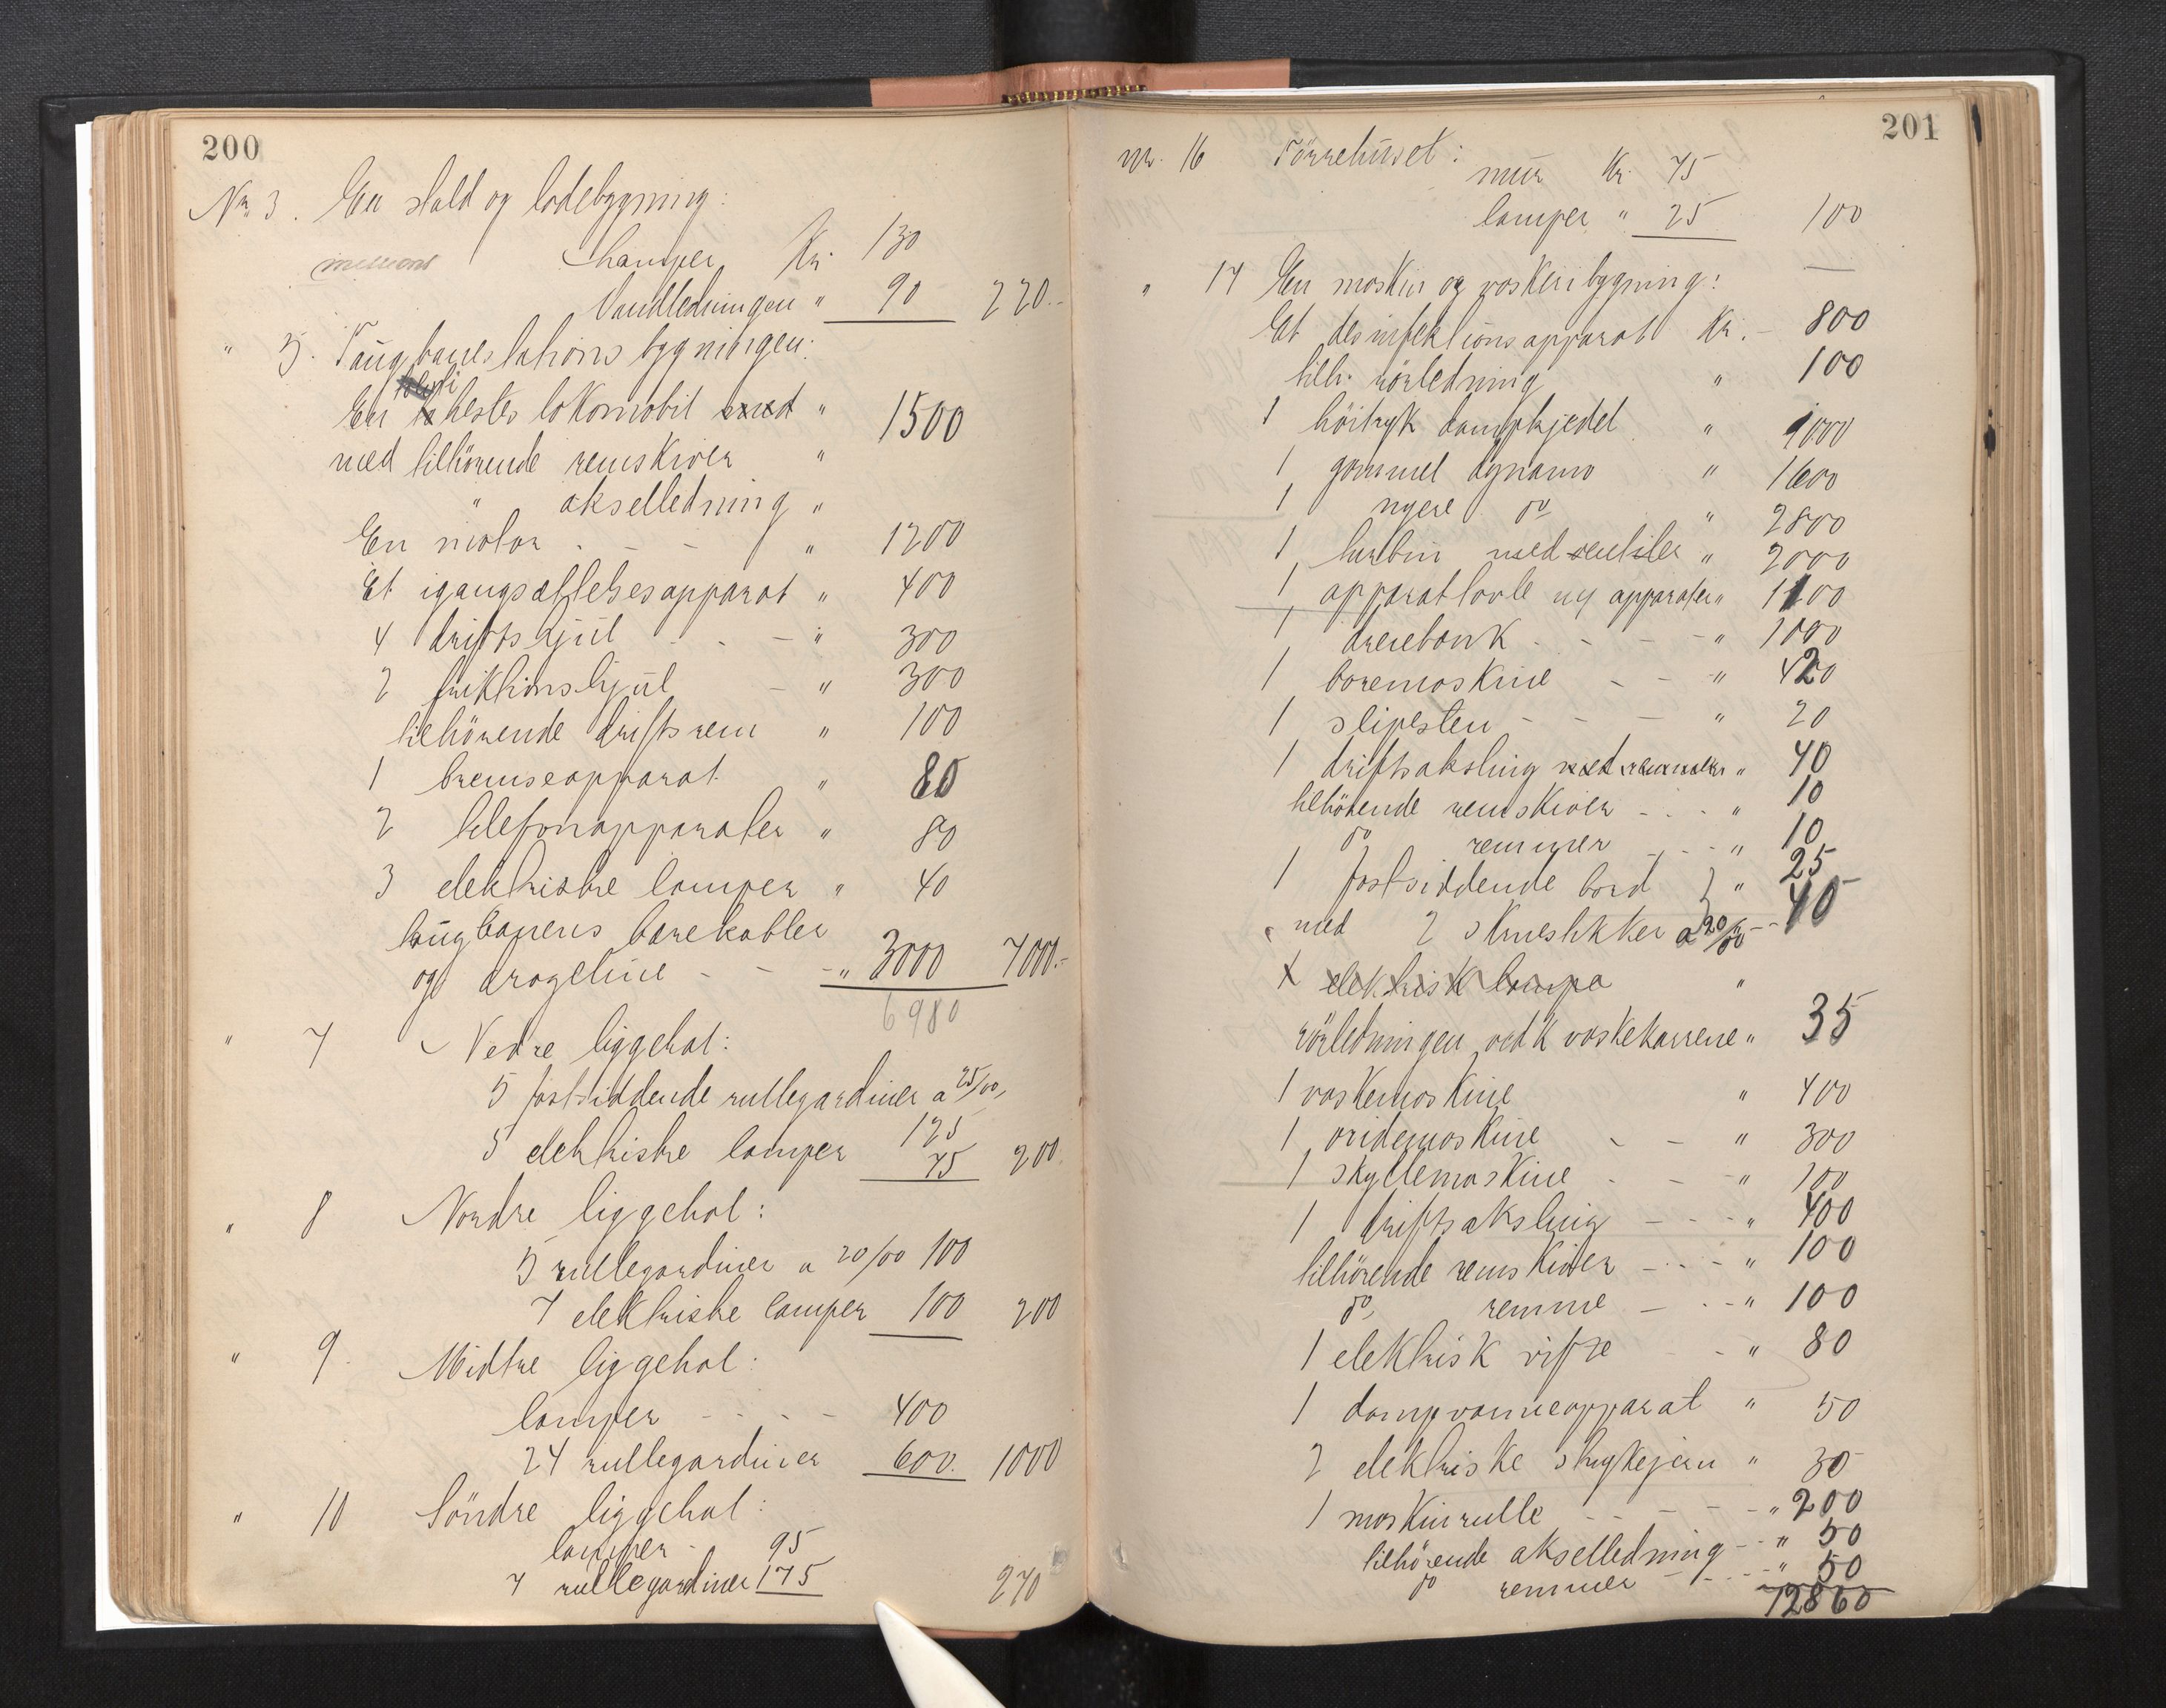 200
No. 3. En stald og ladebygning:
Lamper Kr. 130
Vandledningen " 90 220.-
" 5. Taugbanestationsbygningen:
En hestes lokomobil med " 1500
med tilhörende remskiver "
" akselledning "
En motor - - - " 1200
Et igangsættelsesapparat " 400
4 driftshjul - - - " 300
2 friktionshjul - " 300
tilhörende driftsrem " 100
1 bremseapparat " 80
2 telefonapparater " 80
3 elektriske lamper " 40
taugbanens bærekabler
og drageline - - - " 3000 7000.-
6980
" 7 Nedre liggehal:
5 fastsiddende rullegardiner a 25/00,
125
5 elektriske lamper 75 200
" 8 Nordre liggehal:
5 rullegardiner a 20/00 100
7 elektriske lamper 100 200
" 9. Midtre liggehal:
lamper - - - - 400
24 rullegardiner 600. 1000
" 10 Söndre liggehal:
lamper - 95
7 rullegardiner 175 270
201
nr. 16 Törrehuset:
mur Kr. 75
lamper " 25 100
" 17 En maskin og vaskeribygning:
Et desinfektionsapparat Kr. - 800
tilh. rörledning " 100
1 höitryk dampkjedel " 1000
1 gammel dynamo " 1600
1 nyere do " 2800
1 turbin med ventiler " 2000
1 apparattavle og apparater " 1100
1 dreiebænk - - - " 1000
1 boremaskine - - " 420
1 slipesten - - - " 20
1 driftsaksling med remmer " 40
tilhörende remskiver - . - " 10
do remmer - . - " 10
1 fastsiddende bord } " 25
med 2 skruestikker a 20/00 - - 40
1 elektrisk lampe "
rörledningen ved k vaskekarrene " 35
1 vaskemaskine " 400
1 vridemaskine - - " 300
1 skyllemaskine - - " 100
1 driftsaksling - - - " 400
tilhörende remskiver - . - " 100
do, remme - . - " 100
1 elektrisk vifte - - " 80
1 dampvarmeapparat " 50
2 elektriske strykejern " 30
1 maskinrulle - - - - " 200
tilhörende akselledning - - " 50
do remmer - . . - " 50
12860